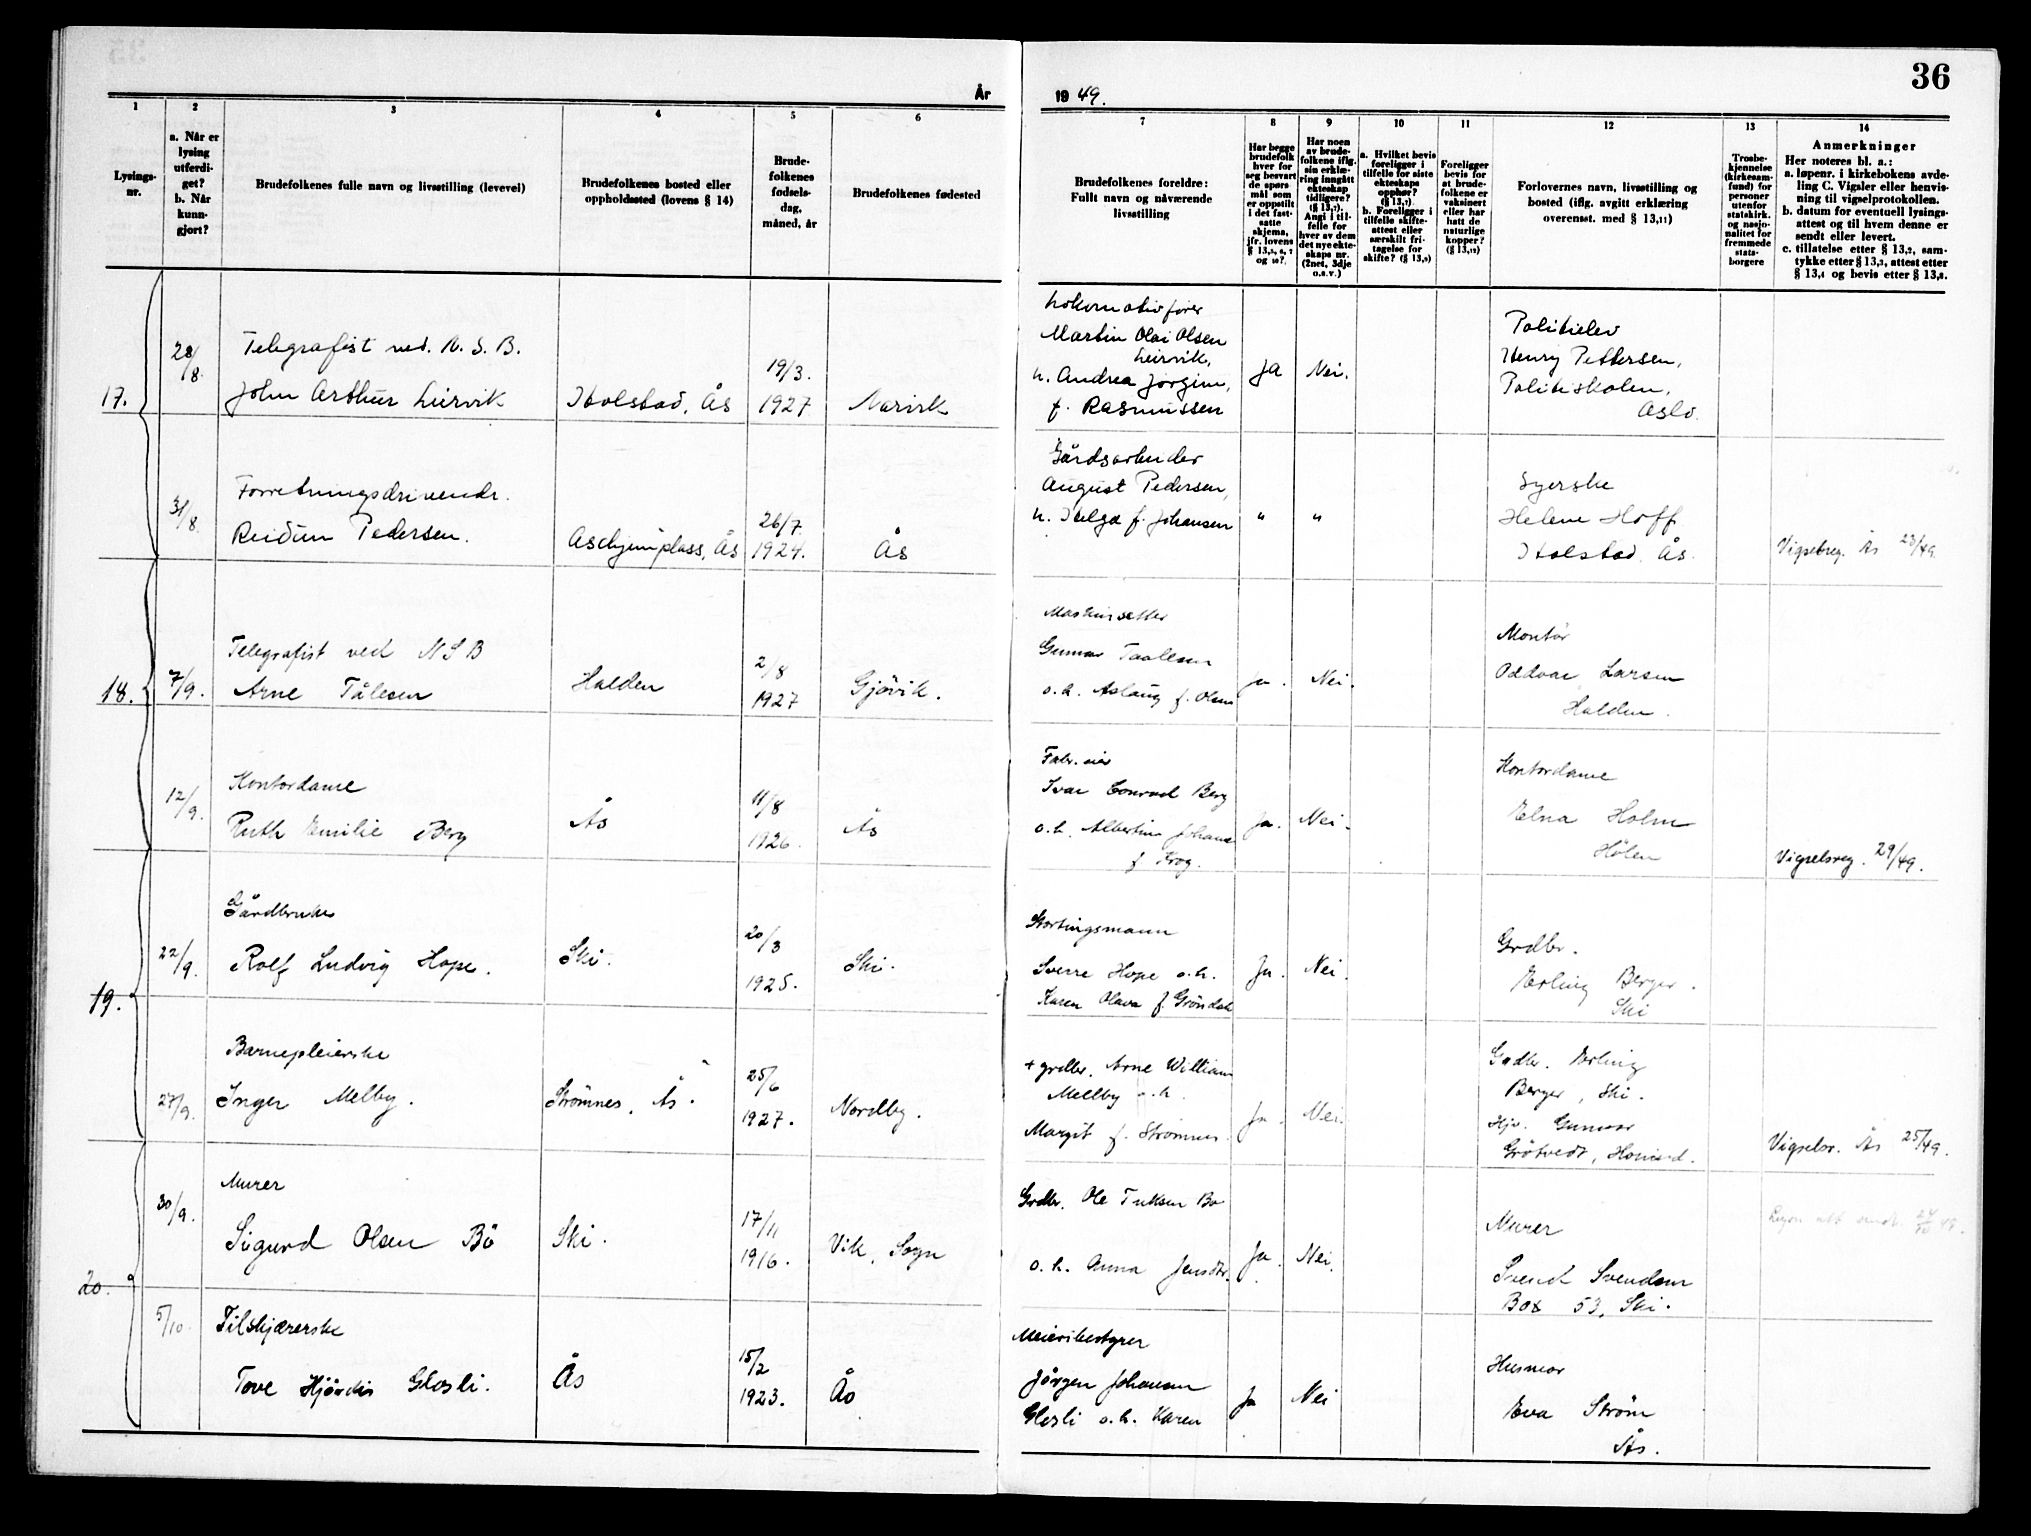 36
År
19 49.
1
2
3
4
5
6
7
8
9
10
11
12
13
14
Lysings-
nr.
a. Når er
lysing
utferdi-
get?
b. Når
kunn-
gjort?
Brudefolkenes fulle navn og livsstilling (levevei)
Brudefolkenes bosted eller
oppholdssted (lovens § 14)
Brude-
folkenes
fødsels-
dag,
måned, år
Brudefolkenes fødested
Brudefolkenes foreldre:
Fullt navn og nåværende
livsstilling
Har begge
brudefolk
hver for
seg besvart
de spørs-
mål som
er oppstilt
i det fast-
satte
skjema,
jfr. lovens
Har noen
av brude-
folkene iflg.
sin erklæ-
ring inngått
ekteskap
tidligere?
(§ 13,7).
Angi i til-
felle for
hver av dem
det nye ekte-
skaps nr.
(2net, 3dje
o.s.v.)
a. Hvilket bevis
foreligger i
tilfelle for siste
ekteskaps
opphør?
(§ 13,7).
b. Foreligger i
tilfelle skifte-
attest eller
særskilt fri-
tagelse for
skifte? (§ 13,9)
Foreligger
bevis for
at brude-
folkene er
vaksinert
eller har
hatt de
naturlige
kopper?
(§ 13,12)
Forlovernes navn, livsstilling og
bosted (iflg. avgitt erklæring
overensst. med § 13,11)
Trosbe-
kjennelse
(kirkesam-
fund) for
personer
utenfor
statskirk.
og nasjo-
nalitet for
fremmede
stats-
borgere
Anmerkninger
Her noteres bl. a.:
a. løpenr. i kirkebokens avde-
ling C. Vigsler eller henvis-
ning til vigselprotokollen.
b. datum for eventuell lysings-
attest og til hvem denne er
sendt eller levert.
c. tillatelse etter § 13,2, sam-
tykke etter § 13,3, attest etter
§ 13,4 og bevis etter § 13,8.
17.
28/8.
Telegrafist ved. N. S. B.
John Arthur Leirvik
Holstad, Ås
19/3.
1927
Narvik
Lokomotivfører
Martin Olai Olsen
Leirvik,
h. Andrea Jørgine,
f. Rasmussen
Ja
Nei.
Politielev
Henry Pettersen,
Politiskolen,
Oslo.
31/8.
Forretningsdrivende.
Reidun Pedersen.
Askjemplass, Ås
26/7.
1924.
Ås
Gårdsarbeider
August Pedersen,
h. Helga f. Johansen
"
"
Syerske
Helene Hoff
Holstad. Ås.
Vigselreg. Ås 23/49.
18.
7/9.
Telegrafist ved NSB
Arne Tålesen
Halden
2/8
1927
Gjøvik.
Maskinsetter
Gunnar Taalesen
o.h. Aslaug f. Olsen
Ja.
Nei.
Montør
Oddvar Larsen
Halden.
12/9.
Kontordame
Ruth Emilie Berg
Ås
11/8
1926.
Ås
Fabr.eier
Ivar Conrad Berg
o.h. Albertine Johanne
f. Krog.
Ja.
Nei.
Kontordame
Elna Holm
Hølen
Vigselsreg. 29/49.
19.
22/9.
Gårdbruker
Rolf Ludvig Hope.
Ski.
20/3
1925.
Ski.
Stortingsmann
Sverre Hope o.h.
Karen Olava f. Grøndahl
Ja.
Nei.
Grdbr.
Erling Berger.
Ski
27/9.
Barnepleierske
Inger Melby.
Strømnes, Ås.
25/6
1927.
Nordby.
+ grdbr. Arne William
Mellby o.h.
Margit f. Strømnes.
Ja.
Nei.
Grdbr. Erling
Berger, Ski.
Hjv. Gunvor
Grøtvedt,
Vigselsr. Ås 25/49.
20.
30/9.
Murer
Sigurd Olsen Bö
Ski.
17/11
1916.
Vik, Sogn
Grdbr. Ole Bø
o.h. Anna Jensdtr.
Ja.
Nei.
Murer
Svend Svendsen
Box 53, Ski.
Lysn. att. sendt. 24/10 49.
5/10.
Tilskjærerske
Tove Hjördis Glosli.
Ås
15/2
1923.
Ås
Meieribestyrer
Jörgen Johansen
Glosli o.h. Karen
Ja
Nei
Husmor
Eva Strøm
Ås.